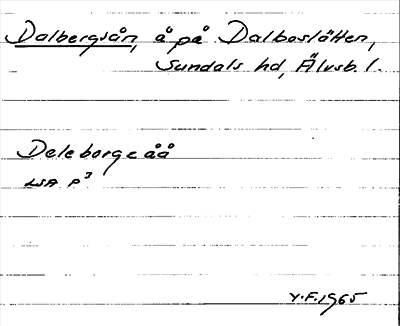 Dalbergsån, å på Dalboslätten,
Sundals hd, Älvsb. l.
Deleborge åå
LSA P³
Y.F. 1965